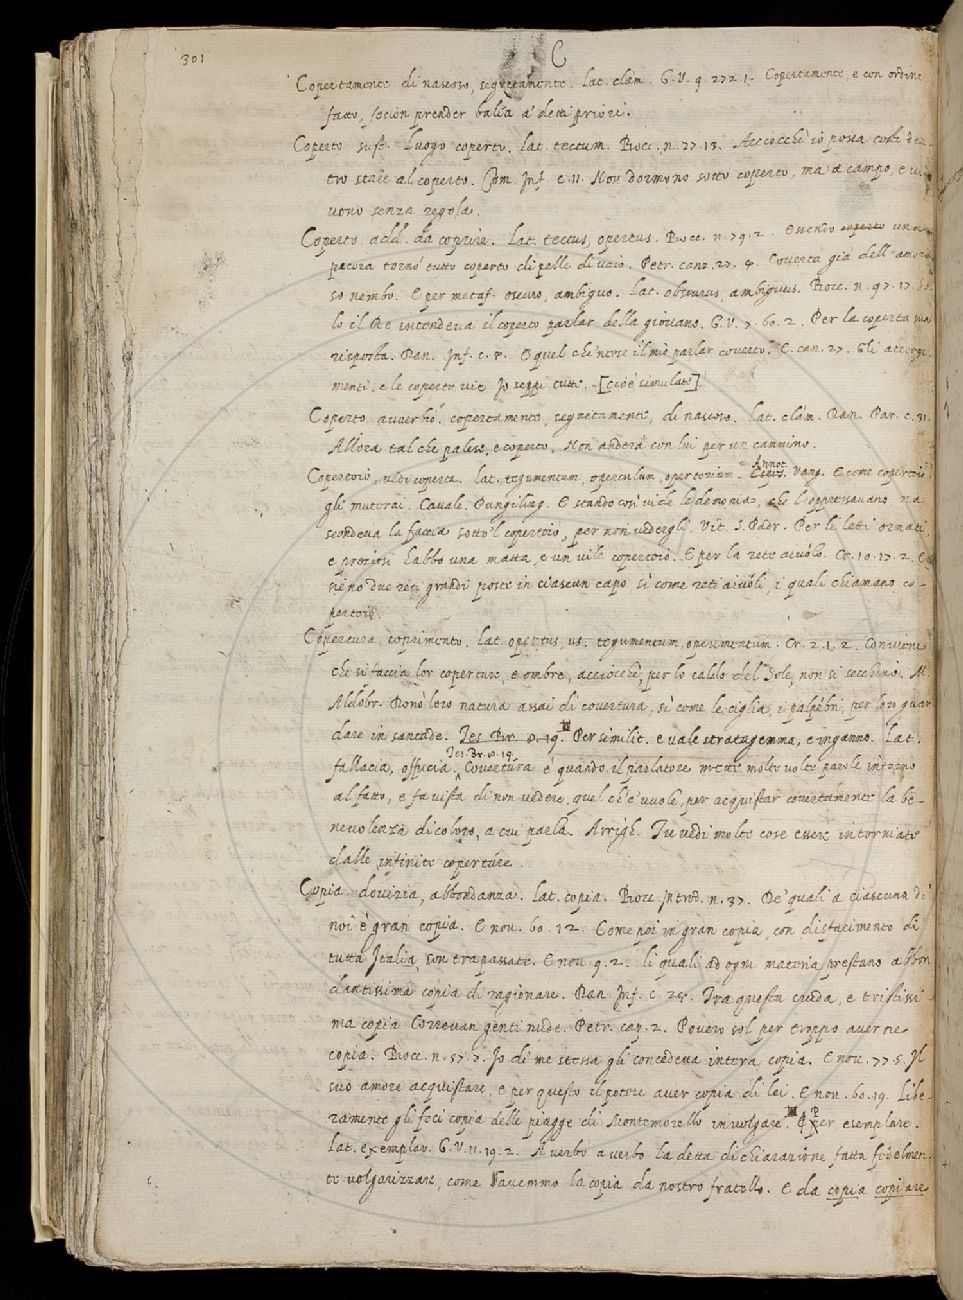 301
C
Copertamente. di nascoso, segretamente. lat. clàm. G. V. 9. 272. 1. Copertamente, e con ordine
fatto, fecion prender balìa a' detti priori.
Coperto sust. luogo coperto. lat. tectum. Bocc. n. 77. 13. Acciocchè io possa costì den-
tro stare al coperto. Com. Inf. c. 11. Non dormono sotto coperto, ma a campo, e vi-
vono senza regola.
Coperto. add. da coprire. lat. tectus, opertus. Bocc. n. 79. 2. essendo una
pecora tornò tutto coperto di pelle di vaio. Petr. canz. 27. 4. Coverta già dell'amoro-
so nembo. E per metaf. oscuro, ambiguo. lat. obscurus, ambiguus. Bocc. n. 97. 17. So-
lo il Re intendeva il coperto parlar della giovane. G. V. 7. 60. 2. Per la coperta sua
risposta. Dan. Inf. c. 4. E quel che 'ntese il mio parlar coverto. E can. 27. Gli accorgi-
menti, e le coperte vie Io seppi tutte. [cioè simulate]
Coperto avverbio. copertamente, segretamente, di nascoso. lat. clàm. Dan. Par. c. 31.
Allora tal che palese, e coperto, Non anderà con lui per un cammino.
Copertoio, vedi coperta. lat. tegumentum, operculum, opertorium. Annot. Vang. E come copertoio
gli muterai. Cavalc. Pungiling. E stando così vide le demonia, che l'oppressavano na-
scondeva la faccia sotto 'l copertoio, per non vedergli. Vit. S. Padr. Per li letti ornati,
e preziosi habbo una matta, e un vile copertoio. E per la rete aiuolo. Cr. 10. 17. 2. E
sieno due reti grandi poste in ciascun capo, sì come reti aiuoli, i quali chiamano co-
pertoio.
Copertura. coprimento. lat. opertus, us. tegumentum, operimentum. Cr. 2. 1. 2. Conviene
che si faccia lor coperture, e ombre, acciocchè, per lo caldo del Sole, non si secchino. M.
Aldobr. Donò loro natura assai di covertura, sì come le ciglia, i palpebri, per loro guar-
dare in santade. Tes. Br. 8. 19. Per similit. e vale stratagemma, e inganno. Lat.
Tes. Br. 8. 19.
fallacia, offucia. Covertura è quando il parlatore mette molte volte parole intorno
al fatto, e fa vista di non vedere, quel ch'e' vuole, per acquistar covertamente la be-
nevolenza di coloro, a cui parla. Arrigh. Tu vedi molte cose essere intorniate
dalle infinite coperture.
Copia. dovizia, abbondanza. lat. copia. Bocc. Introd. n. 37. De' quali a ciascuna di
noi è gran copia. E nou. 60. 12. Come poi in gran copia, con disfacimento di
tutta Italia, son trapassate. E nou. 9. 2. li quali ad ogni materia prestano abbon-
dantissima copia di ragionare. Dan. Inf. c. 24. Tra questa cruda, e tristissi-
ma copia Correvan genti nude. Petr. cap. 2. Povero sol per troppo averne
copia. Bocc. n. 57. 7. Io di me stessa gli concedeva intera copia. E nou. 77. 5. Il
suo amore acquistare, e per questo il potere aver copia di lei. E nou. 60. 19. Libe-
ramente gli feci copia delle piagge di Montemorello in volgare. Per esemplare.
Lat. exemplar. G. V. 11. 19. 2. A verbo a verbo la detta dichiarazione fatta fedelmen-
te volgarizzare, come n'avemmo la copia da nostro fratello. E da copia copiare